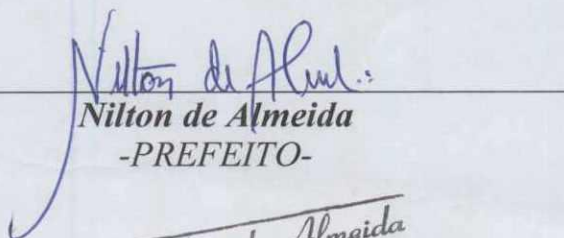 Nilton de Almeida
Nilton de Almeida
-PREFEITO-
de Almeida